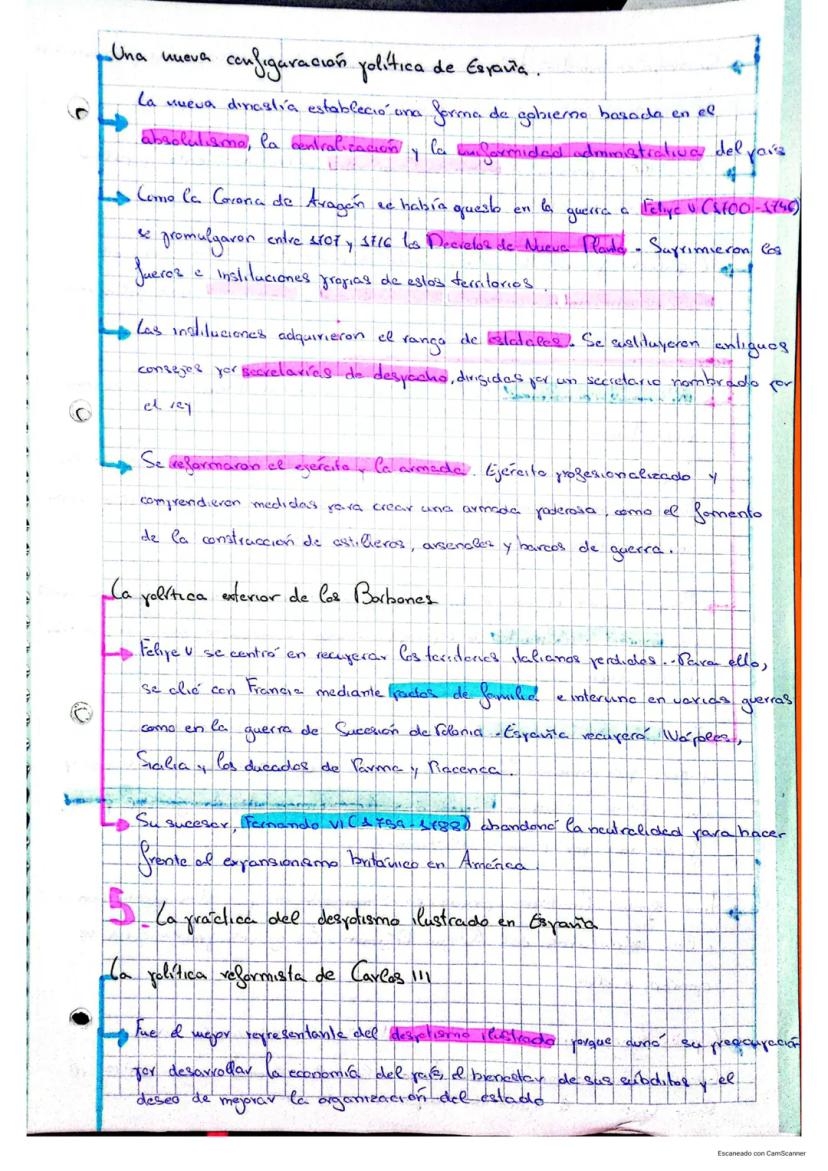 Una nueva configuración política de España.
La nueva dinastía estableció una forma de gobierno basada en el
absolutismo, la centralización y la uniformidad administrativa del país
Como la Corona de Aragón se había puesto en la guerra a Felipe V (1700-1746)
se promulgaron entre 1707 y 1716 los Decretos de Nueva Planta. Suprimieron los
fueros e instituciones propias de estos territorios.
Las instituciones adquirieron el rango de estatales. Se sustituyeron antiguos
consejos por secretarías de despacho, dirigidas por un secretario nombrado por
el rey
Se reformaron el ejército y la armada. Ejército profesionalizado y
comprendieron medidas para crear una armada poderosa, como el fomento
de la construcción de astilleros, arsenales y barcos de guerra.
La política exterior de los Borbones
Felipe V se centró en recuperar los territorios italianos perdidos. Para ello,
se alió con Francia mediante pactos de familia e intervino en varias guerras
como en la guerra de Sucesión de Polonia. España recuperó Nápoles,
Sicilia y los ducados de Parma y Placenca.
Su sucesor, Fernando VI abandonó la neutralidad para hacer
frente al expansionismo británico en América.
5. La práctica del despotismo ilustrado en España
La política reformista de Carlos III
Fue el mejor representante del despotismo ilustrado porque aunó su preocupación
por desarrollar la economía del país, el bienestar de sus súbditos y el
deseo de mejorar la organización del estado.
Escaneado con CamScanner